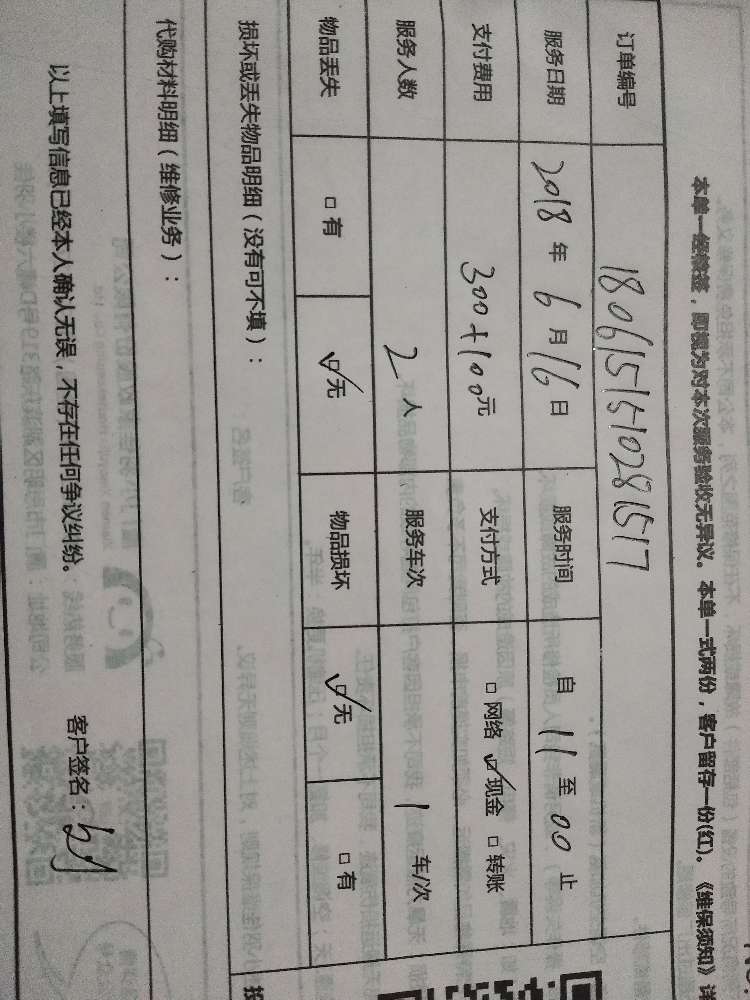 本单一经核签，即视为对本次服务验收无异议。本单一式两份，客户留存一份(红)。《维保须知》详
订单编号 180615151028 1517
服务日期 2018 年 6 月 16 日 服务时间 自 11 至 00 止
支付费用 300+100元 支付方式 □ 网络 ☑ 现金 □ 转账
服务人数 2 人 服务车次 1 车/次
物品丢失 □ 有 ☑ 无 物品损坏 ☑ 无 □ 有
损坏或丢失物品明细（没有可不填）：
代购材料明细（维修业务）：
以上填写信息已经本人确认无误，不存在任何争议纠纷。 客户签名：